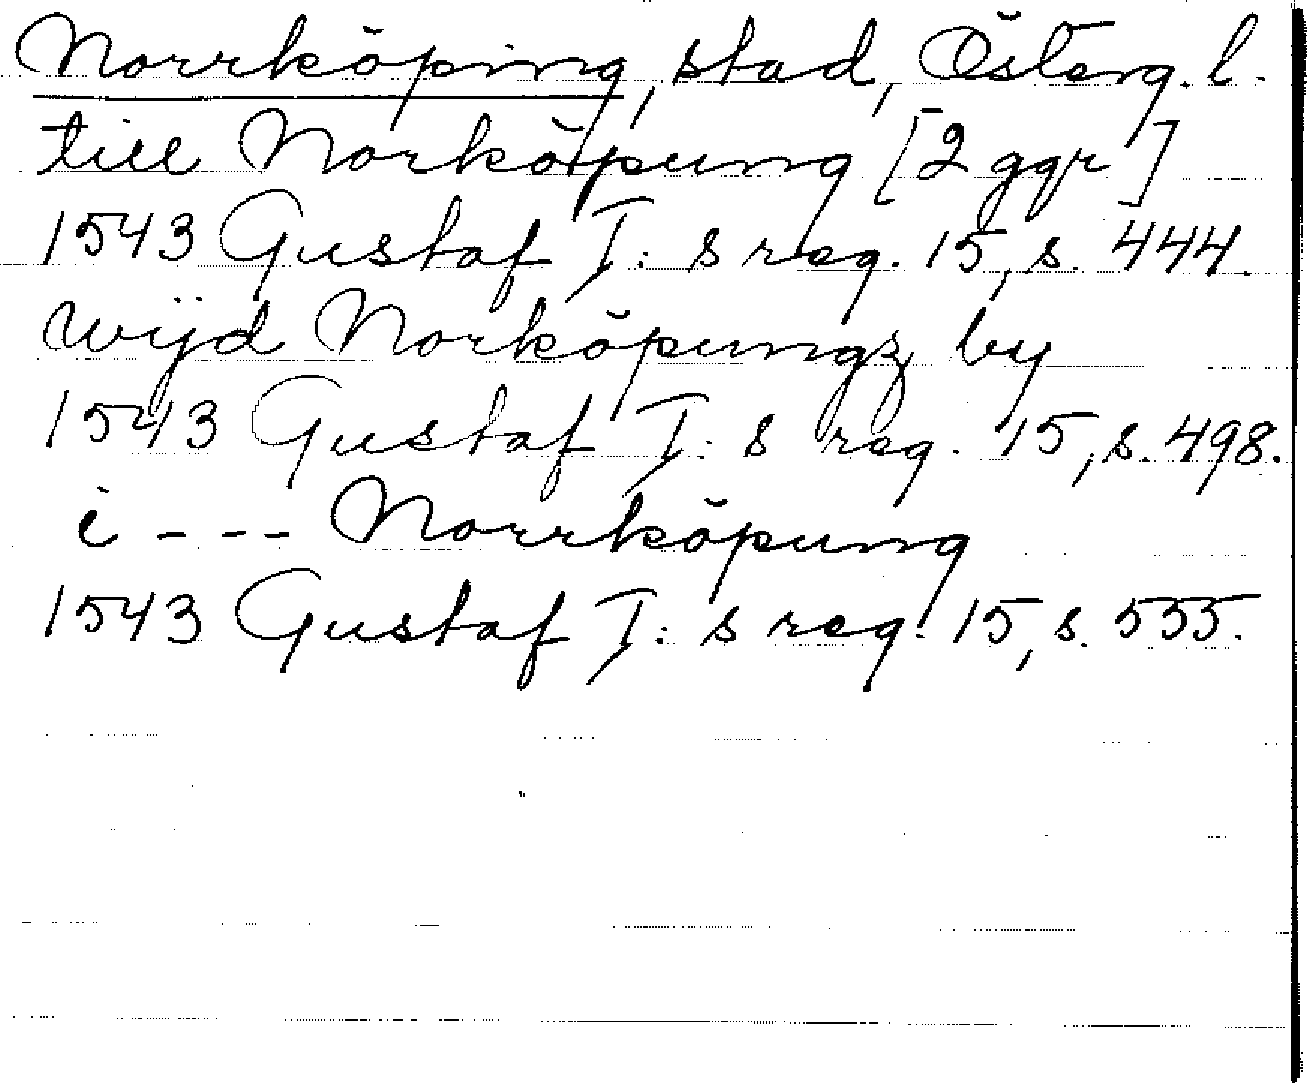 Norrköping, stad, Österg. l.
till Norköpung [2 ggr]
1543 Gustaf I:s reg. 15, s. 444.
wijd Norköpungz by
1543 Gustaf I:s reg. 15, s. 498.
i - - - Norrköpung
1543 Gustaf I:s reg. 15, s. 555.